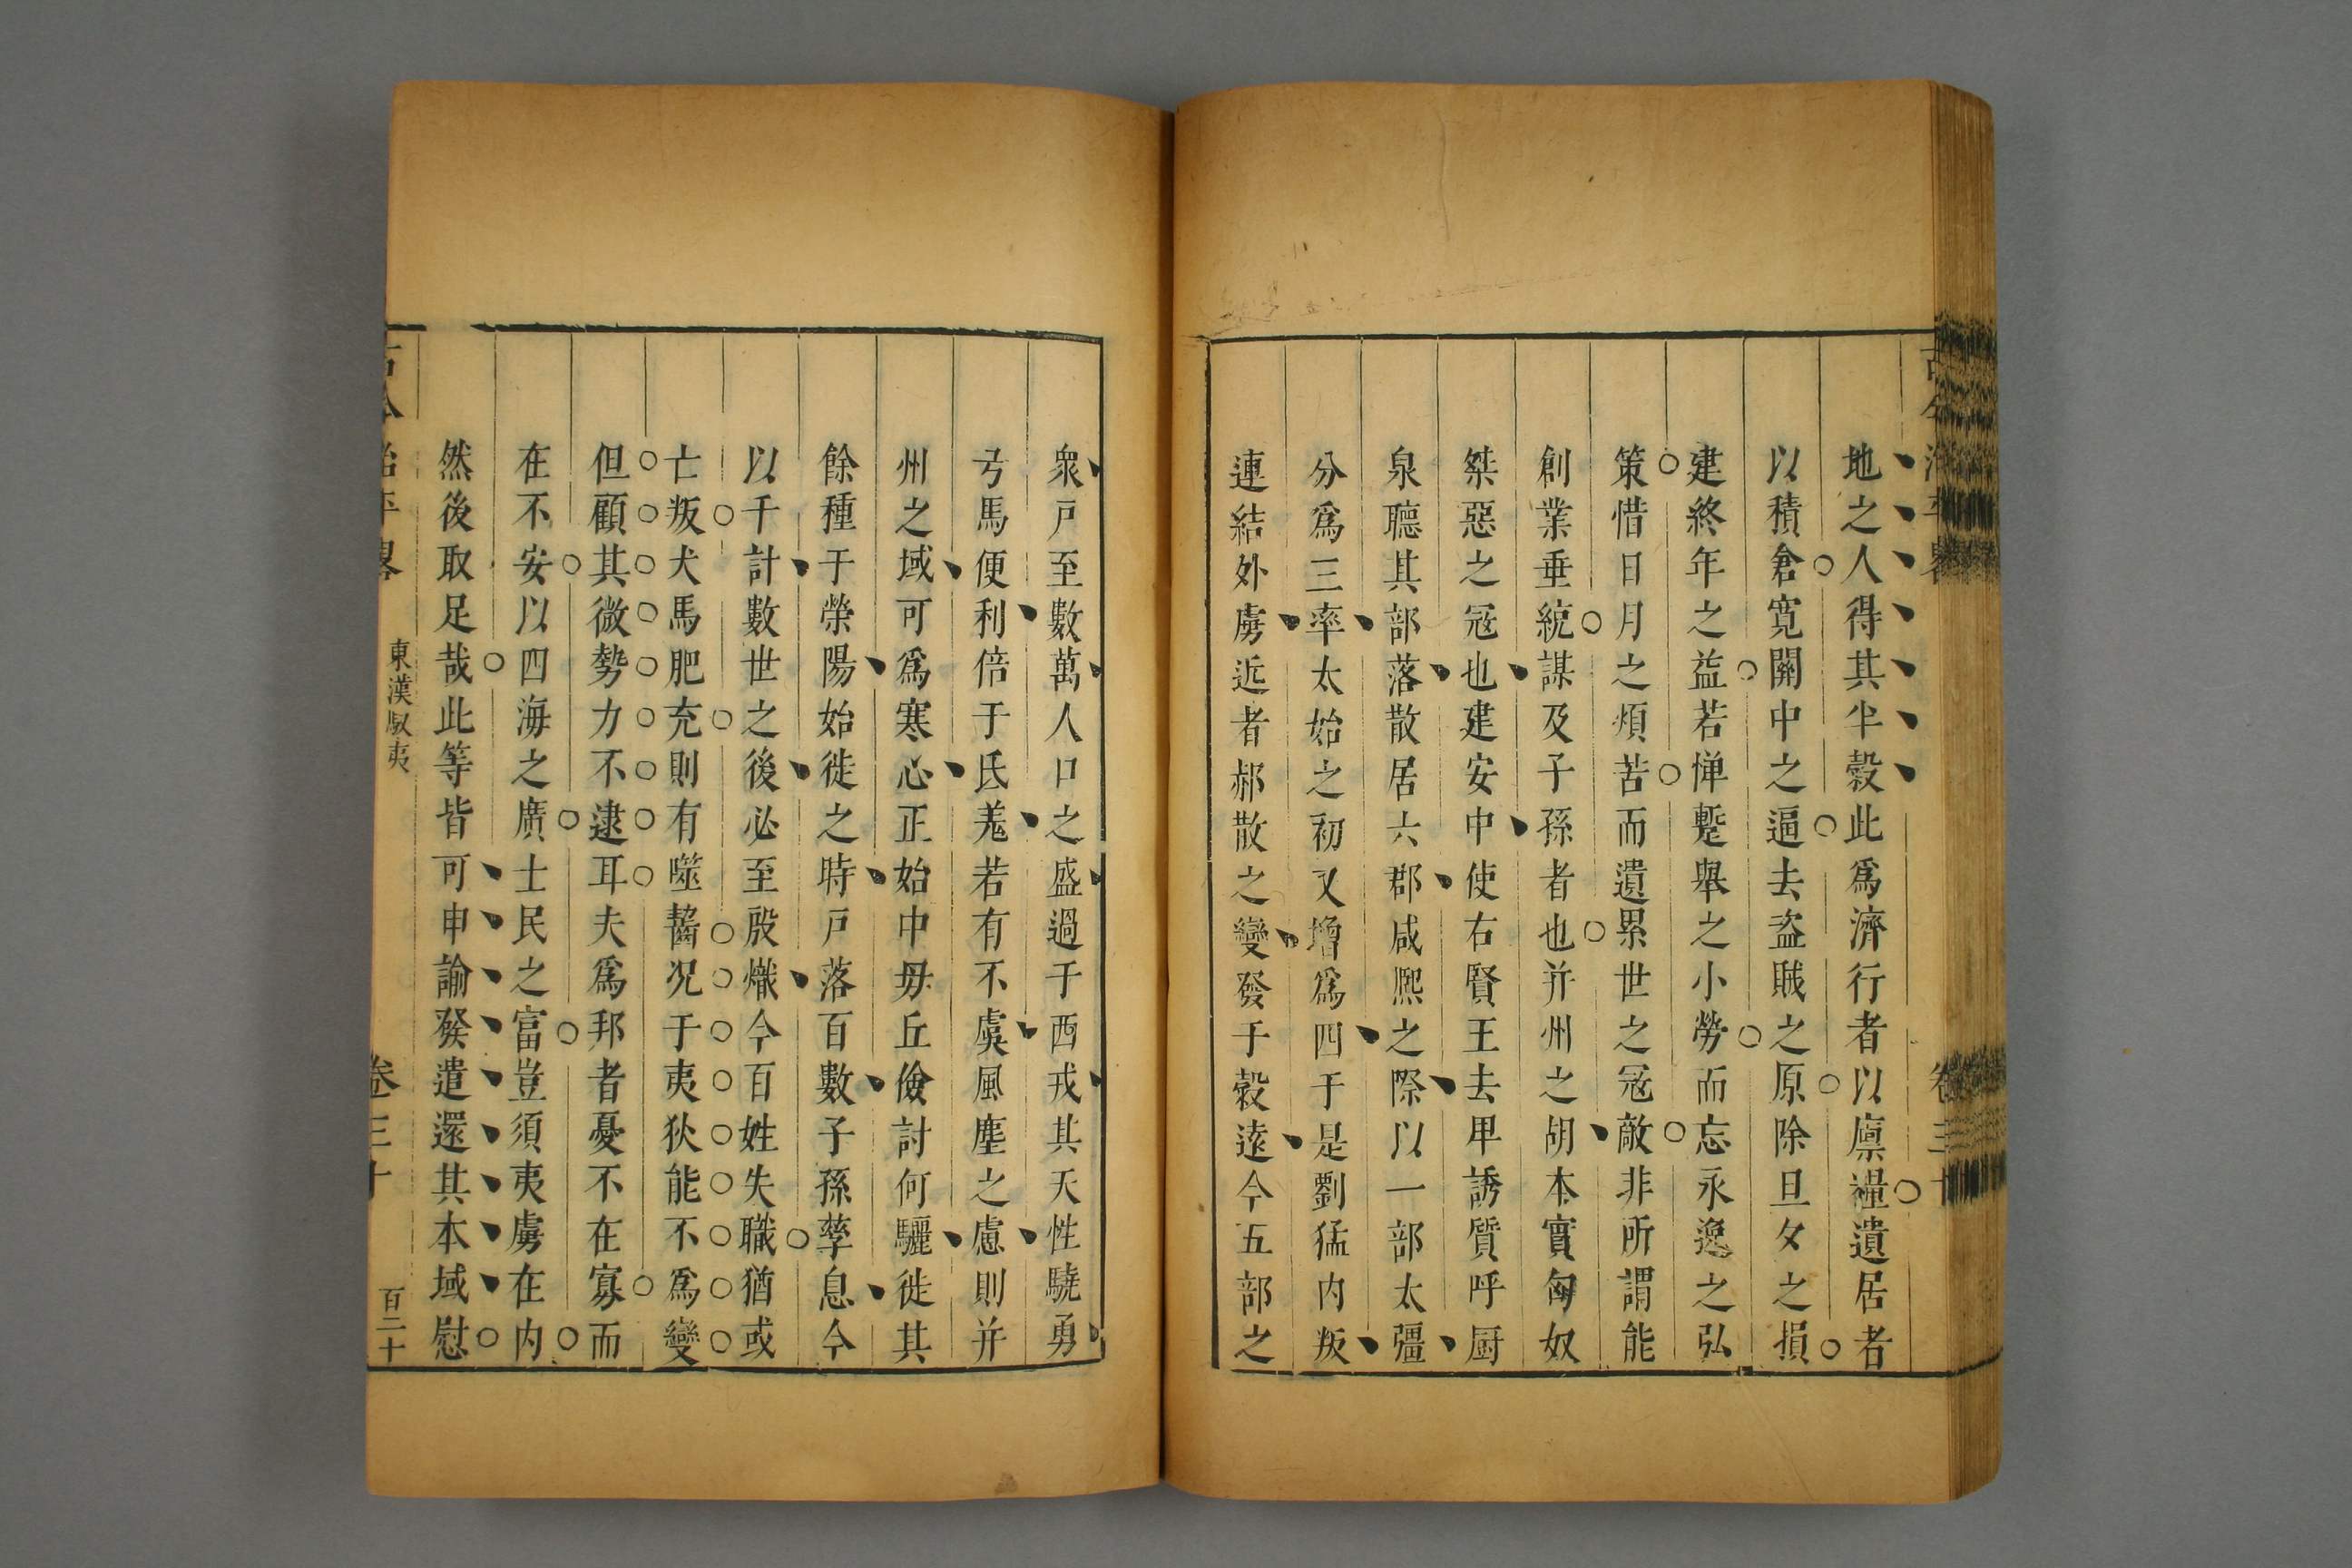 地之人得其半穀此爲濟行者以廪糧遺居者
以積倉寛關中之逼去盗賊之原除旦夕之損
建終年之益若憚蹔舉之小勞而忘永逸之弘
策惜日月之煩苦而遺累世之冦敵非所謂能
創業垂統謀及子孫者也并州之胡本實匈奴
桀惡之冦也建安中使右賢王去𤰞誘質呼厨
泉聽其部落散居六郡咸熙之際以一部太彊
分爲三率太始之初又增爲四于是劉猛内叛
連結外虜近者郝散之變發于穀遠今五部之
衆戸至數萬人口之盛過于西戎其天性驍勇
弓馬便利倍于氐羌若有不虞風塵之慮則并
州之域可爲寒心正始中毋丘儉討何驪徙其
餘種于榮陽始徙之時戸落百數子孫孳息今
以千計數世之後必至殷熾今百姓失職猶或
亡叛犬馬肥充則有噬齧况于夷狄能不爲變
但顧其微勢力不逮耳夫爲邦者憂不在寡而
在不安以四海之廣士民之富豈須夷虜在内
然後取足哉此等皆可申諭發遣還其本域慰
古今治平畧 東漢馭夷 卷三十 百二十